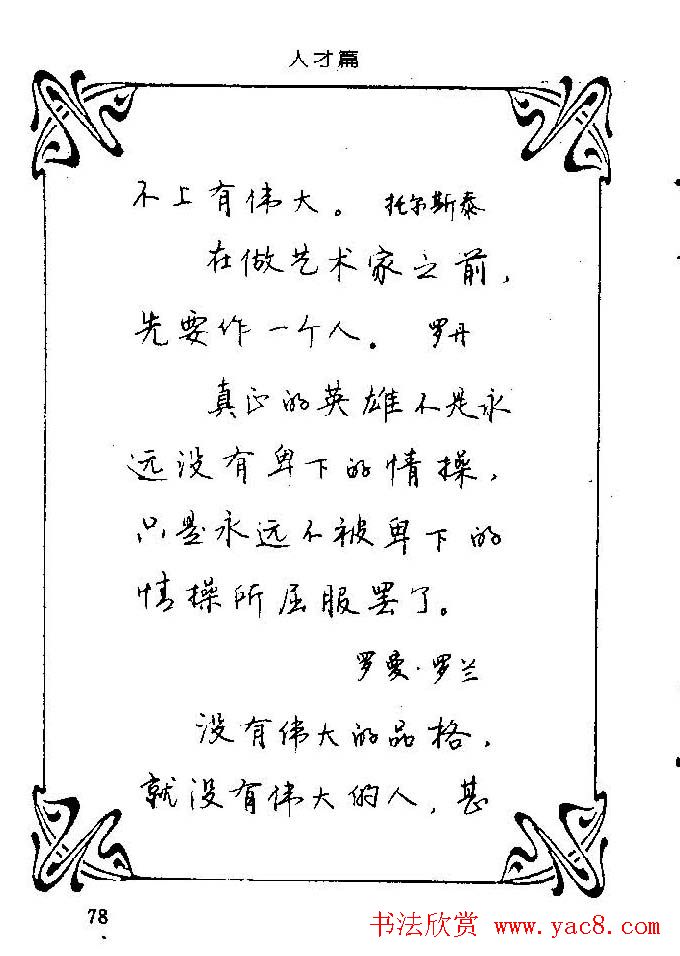 人才篇
不上有伟大。 托尔斯泰
在做艺术家之前，
先要作一个人。 罗丹
真正的英雄不是永
远没有卑下的情操，
只是永远不被卑下的
情操所屈服罢了。
罗曼·罗兰
没有伟大的品格，
就没有伟大的人，甚
78
书法欣赏 www.yac8.com